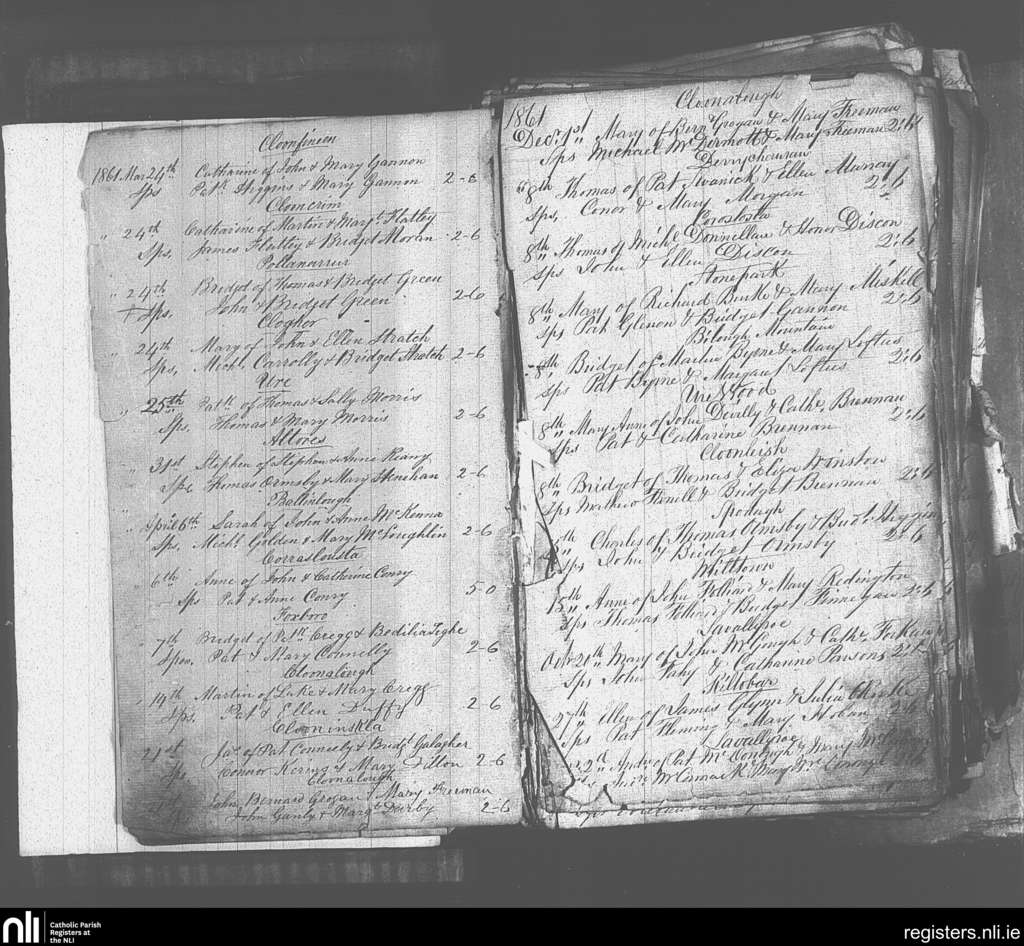 Cloonfineen
1861 Mar 24th Catharine of John & Mary Gannon
Sps Patk Higgins & Mary Gannon 2-6
Clooncrim
" 24th Catharine of Martin & Margt Flatley
Sps, James Flatley & Bridget Moran 2-6
Pollanarrur
" 24th Bridget of Thomas & Bridget Green
+ Sps. John & Bridget Green 2-6
Clogher
" 24th Mary of John & Ellen Stratch
Sps, Michl Carrolly & Bridget Stratch 2-6
Ure
" 25th Patk of Thomas & Sally Morris
Sps. Thomas & Mary Morris 2-6
Allores
" 31st Stephen of Stephen & Anne
Sps Thomas Ormsby & Mary 2-6
Ballinlough
" April 6th Sarah of John & Anne McKenna
Sps, Michl Golden & Mary McLoughlin 2-6
6th Anne of John & Catherine Conry
Sps Pat & Anne Conry 5-0
Foxboro
7th Bridget of Patk Cregg & Bedilia
Spon. Pat & Mary Connelly 2-6
Cloonalough
" 14th Martin of Luke & Mary Cregg
Sps. Pat & Ellen Duffy 2-6
Clooninskla
21st of Pat Conneely & Bridgt Galagher
Connor & Mary 2-6
Cloonalough
John, Bernard Grogan & Mary Freeman
John Ganly & Margt Darby 2-6
1861 Cloonalough
Decr 1st Mary of Bern Grogan & Mary Freeman
Sps Michael McDermott & Mary Freeman 2:6
Derrycherran
" 8th Thomas of Pat & Ellen Murray
Sps, Conor & Mary Morgan 2:6
8th Thomas of Michl Donnellan & Honor Discon
Sps John & Ellen Discon 2:6
Stonepark
8th Mary of Richard Burke & Mary Miskill
Sps Pat Glenon & Bridget Gannon 2:6
Mountain
8th Bridget of Martin Byrne & Mary Loftus
Sps Pat Byrne & Margaret Loftus 2:6
Wood
8th Mary Anne of John Devilly & Cathe Brennan
Sps Pat & Catharine Brennan 2:6
Cloonleish
8th Bridget of Thomas & Eliza Winston
Sps Mathew & Bridget Brennan 2:6
Charles of Thomas Ormsby & Budt Higgins
Sps John & Bridget Ormsby 2:6
Milltown
15th Anne of John & Mary Redington
Sps Thomas & Bridget Finnegan 2:6
Lavallyroe
Octr 20th Mary of John McGough & Cathe
Sps John Fahy & Catharine Parsons 2:6
Killobar
27th Ellen of James Glynn & Julia
Sps Pat Fleming & Mary 2:6
Lavallyroe
Andw of Pat McDonagh & Mary
Andw McCormack & Mary
nli
Catholic Parish
Registers at
the NLI
registers.nli.ie